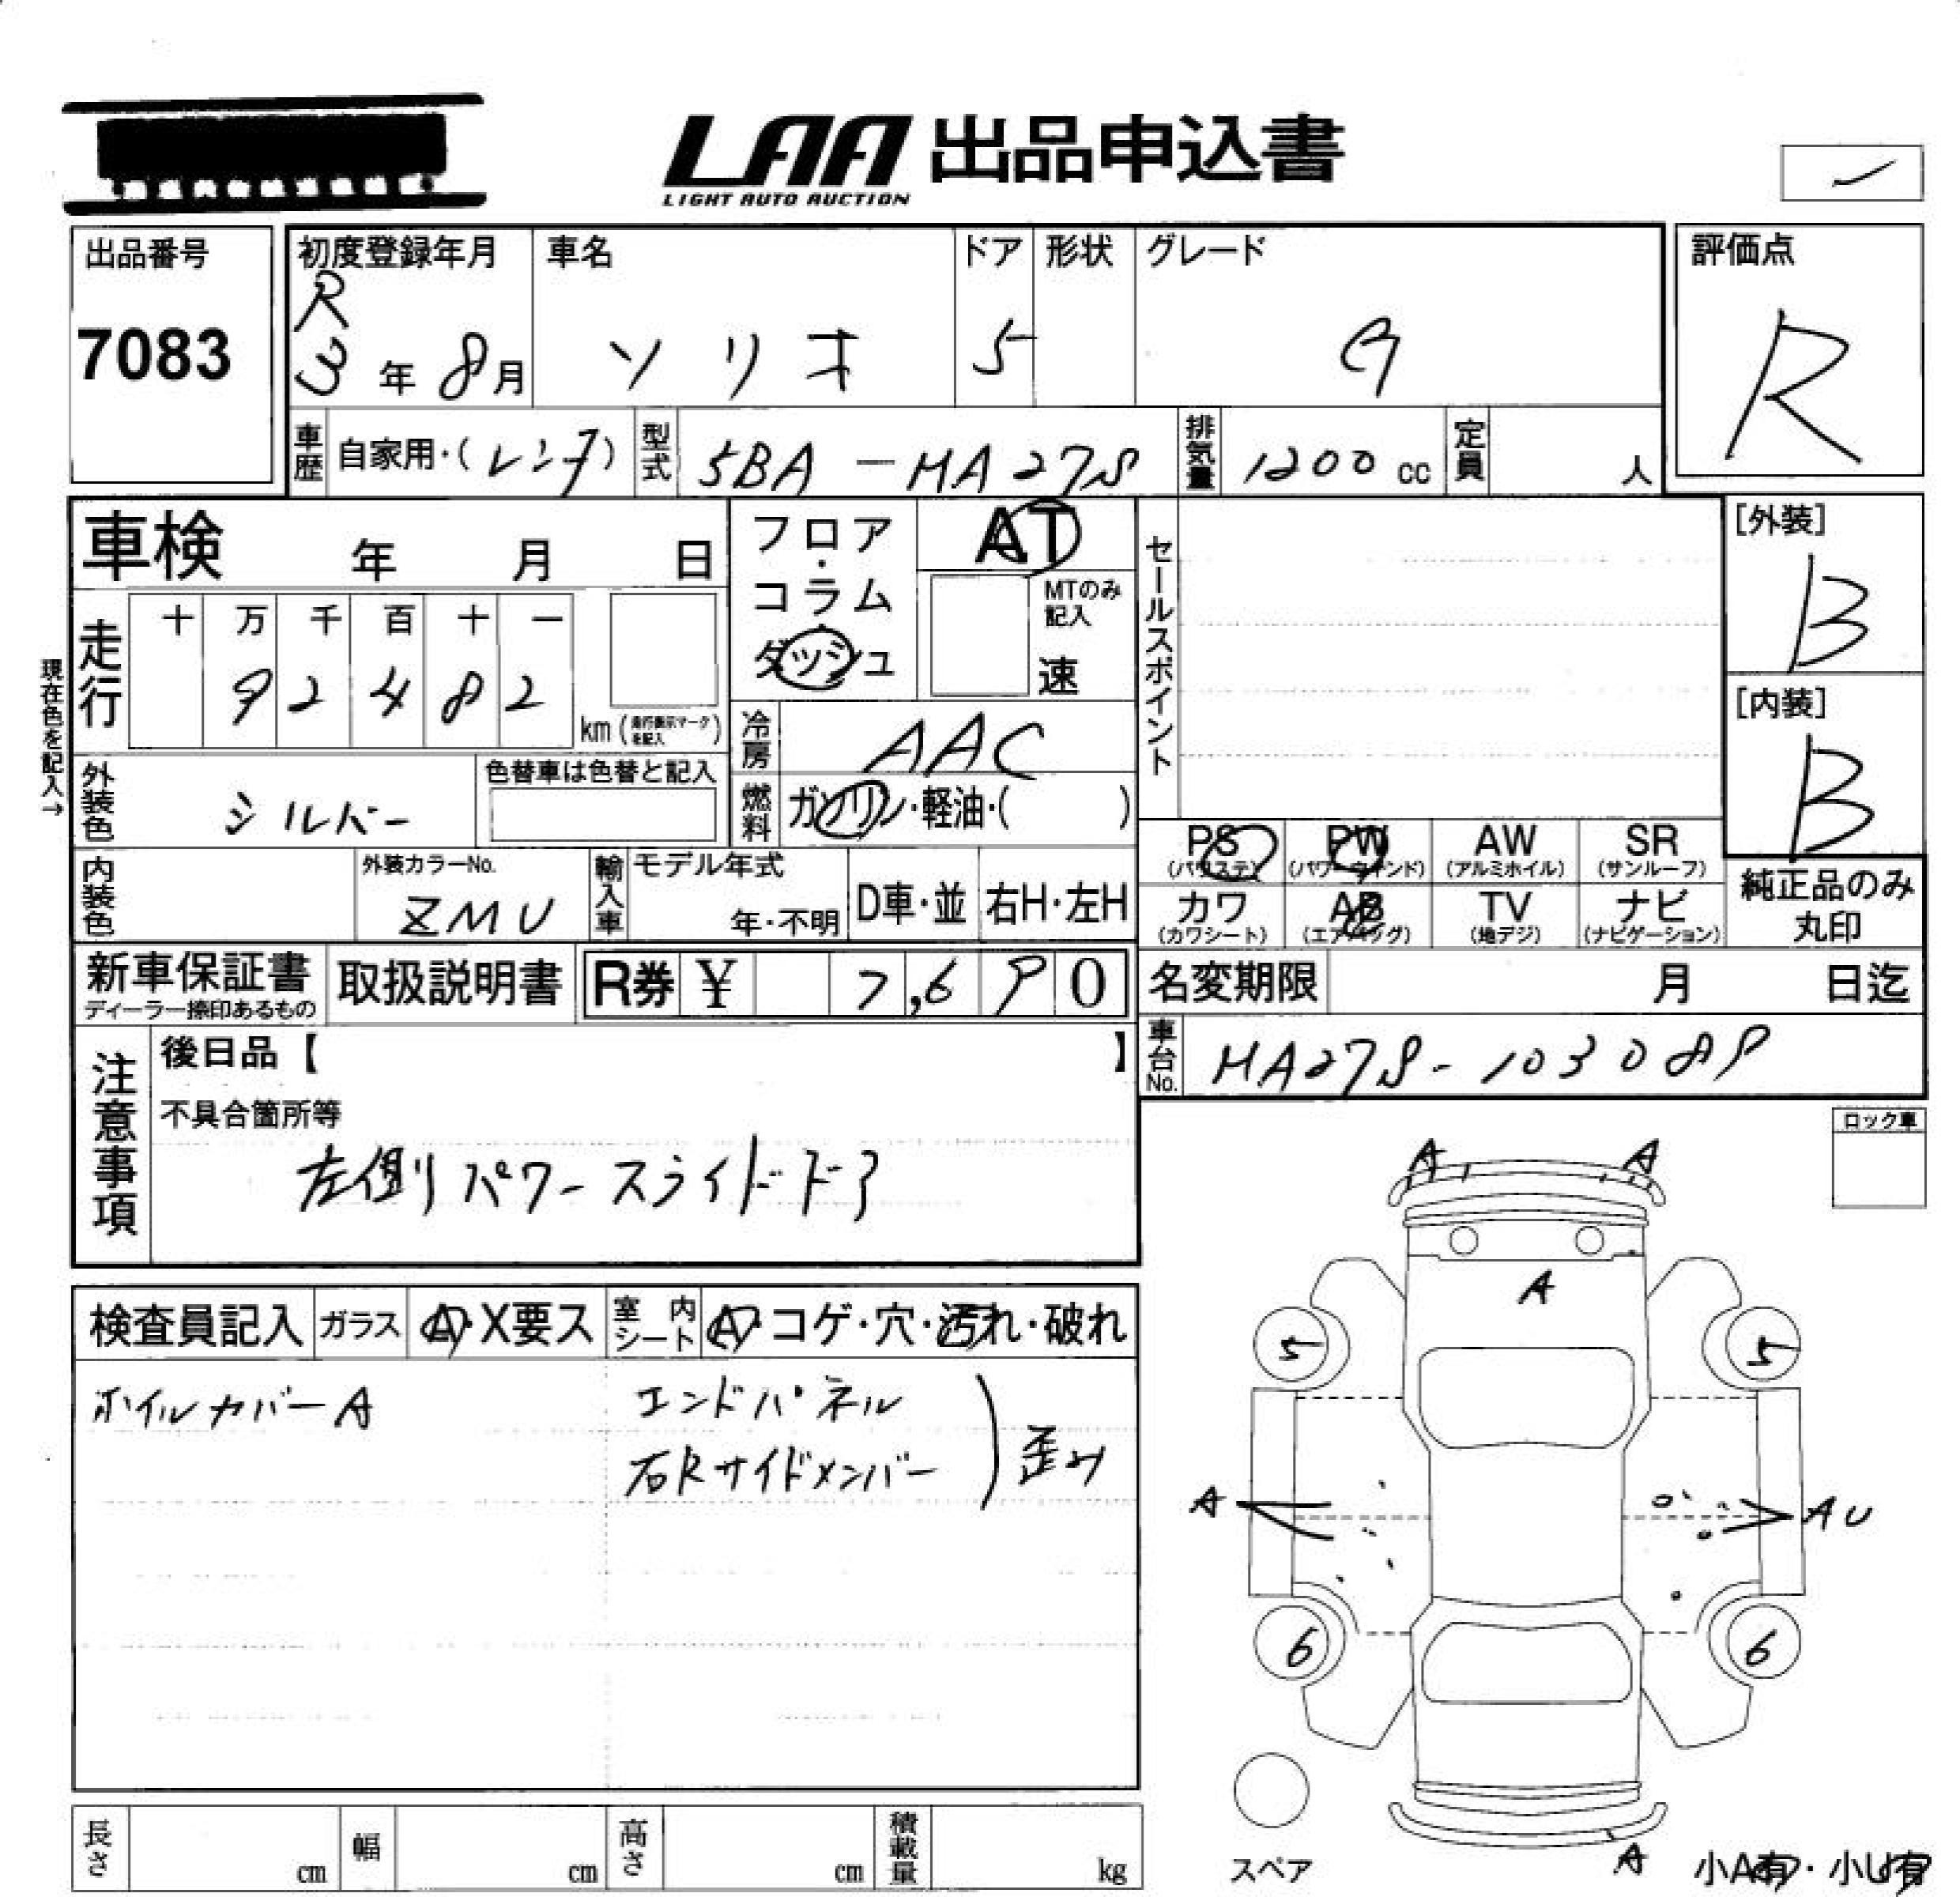 LAA 出品申込書
LIGHT AUTO AUCTION
出品番号
7083
初度登録年月
R3年8月
車名
ソリオ
ドア
5
形状
グレード
G
評価点
R
車歴
自家用・(レンタ)
型式
5BA-MA27S
排気量
1200cc
定員
人
車検 年 月 日
フロア・コラム・ダッシュ
AT
MTのみ記入
速
セールスポイント
[外装]
B
[内装]
B
現在色を記入→
走行
十 万 千 百 十 一
9 2 4 8 2
km(走行表示マークを記入)
冷房
AAC
燃料
ガソリン・軽油・( )
外装色
シルバー
色替車は色替と記入
内装色
外装カラーNo.
ZMU
輸入車
モデル年式
年・不明
D車・並
右H・左H
PS
(パワステ)
PW
(パワーウィンド)
AW
(アルミホイル)
SR
(サンルーフ)
カワ
(カワシート)
AB
(エアバッグ)
TV
(地デジ)
ナビ
(ナビゲーション)
純正品のみ
丸印
新車保証書
ディーラー捺印あるもの
取扱説明書
R券 ¥ 7,690
名変期限 月 日迄
車台No.
MA27S-103089
注意事項
後日品【 】
不具合箇所等
左側リパワースライドドア
ロック車
検査員記入
ガラス
A・X要ス
室内シート
A・コゲ・穴・汚れ・破れ
ホイルカバーA
エンドパネル
右Rサイドメンバー
歪み
A A
A
5 5
A
AU
6 6
スペア
A
小A有・小U有
長さ cm
幅 cm
高さ cm
積載量 kg